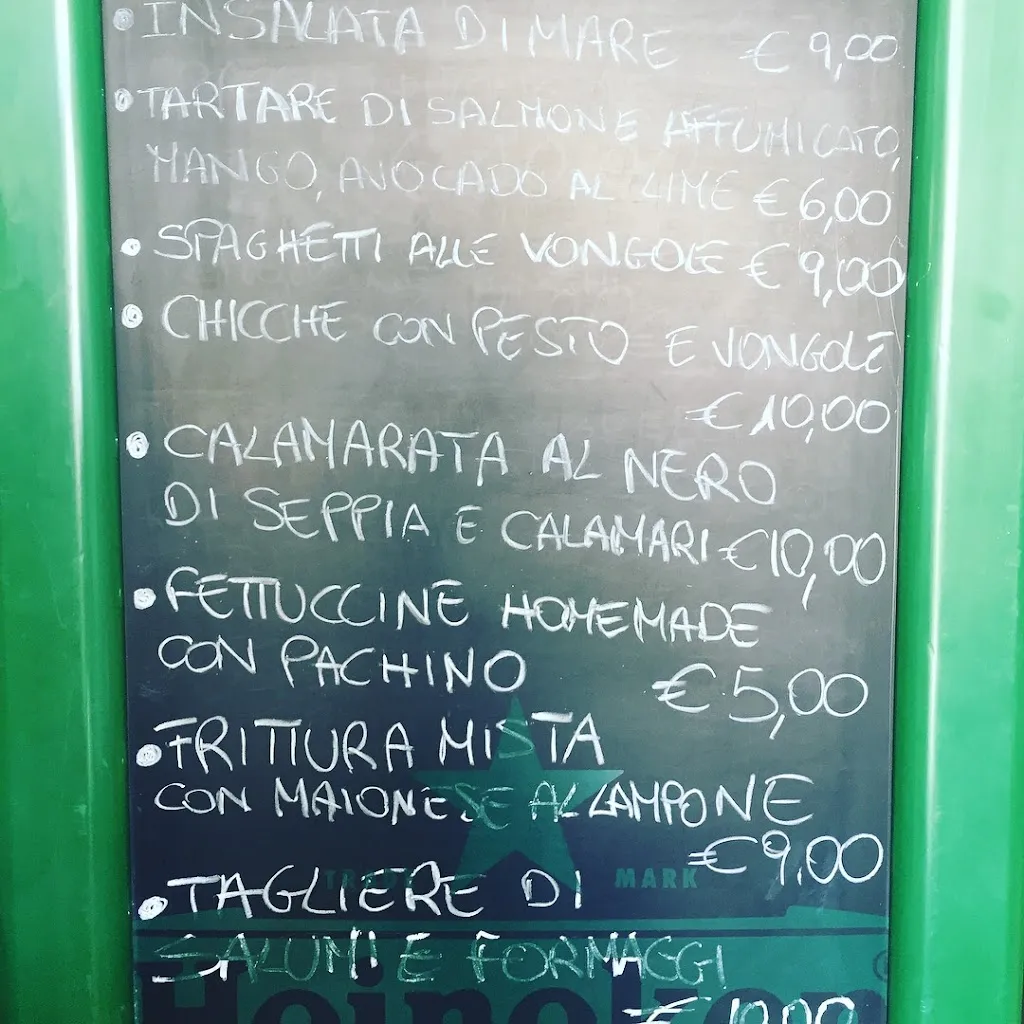 • INSALATA DI MARE € 9,00
• TARTARE DI SALMONE AFFUMICATO,
MANGO, AVOCADO AL LIME € 6,00
• SPAGHETTI ALLE VONGOLE € 9,00
• CHICCHE CON PESTO E VONGOLE
€ 10,00
• CALAMARATA AL NERO
DI SEPPIA E CALAMARI € 10,00
• FETTUCCINE HOMEMADE
CON PACHINO € 5,00
• FRITTURA MISTA
CON MAIONESE AL LAMPONE
€ 9,00
TRADE MARK
• TAGLIERE DI
SALUMI E FORMAGGI
Heineken
€ 10,00